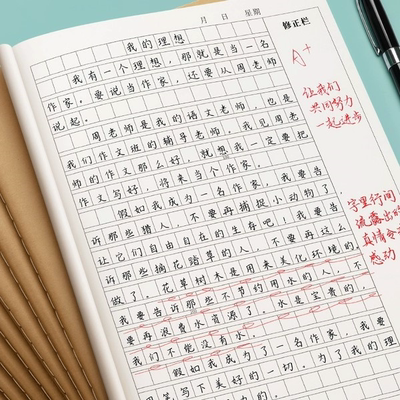 月 日 星期
修正栏
我的理想
我有一个理想，那就是当一名
作家。要说当作家，还要从周老师
说起。
周老师是我的语文老师，也是
我们作文班的辅导老师，我见周老
师的作文那么好，就想我一定要把
作文写好，将来当个作家。
假如我成为一名作家，我要告
诉那些猎人，不要再捕捉小动物了，
让它们自由自在的生存吧！我要告
诉那些摘花踏草的人，不要再这么
做了。花草树木是用来美化环境的。
我要告诉那些不节约用水的人，不
要再浪费水资源了，水是宝贵的，
我们不能没有水。
假如我成为了一名作家，我要
笔写下美好的一切。为了我的理
A+
让我们
共同努力
一起进步
字里行间
流露出的
真情令
感动